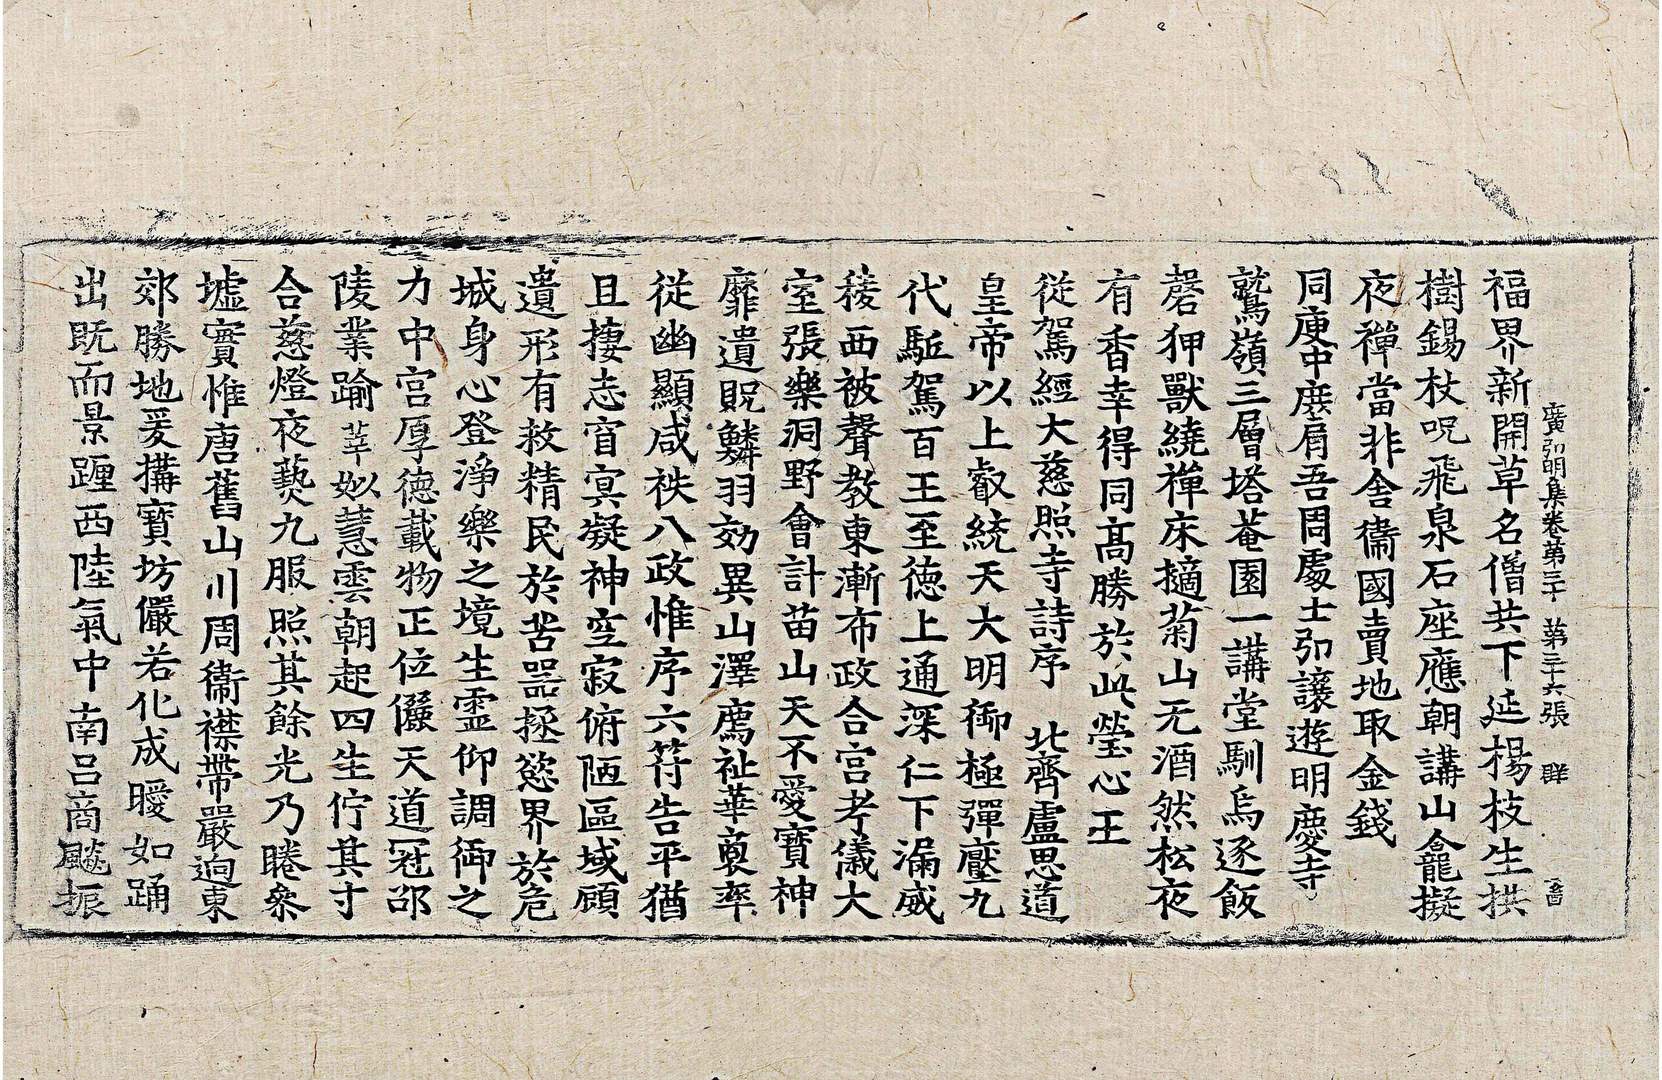 廣弘明集卷第三十　第三十六張　群
福界新開草名僧共下延楊枝生拱
樹錫杖呪飛泉石座應朝講山龕擬
夜禪當非舍衛國賣地取金錢
同庾中庶肩吾周處士弘讓遊明慶寺
鷲嶺三層塔菴園一講堂馴烏逐飯
磬狎獸繞禪床擿菊山无酒然松夜
有香幸得同高勝於此瑩心王
從駕經大慈照寺詩序　北齊盧思道
皇帝以上叡統天大明御極彈壓九
代駈駕百王至德上通深仁下漏威
稜西被聲教東漸布政合宮考儀大
室張樂洞野會計苗山天不愛寶神
靡遺貺鱗羽効異山澤薦祉華裒率
從幽顯咸秩八政惟序六符告平猶
且捿志窅冥凝神空寂俯陋區域顧
遺形有救精民於苦器拯慾界於危
城身心登淨樂之境生靈仰調御之
力中宮厚德載物正位儷天道冠邵
陵業踰莘姒慧雲朝起四生佇其寸
合慈燈夜爇九服照其餘光乃睠叅
墟實惟唐舊山川周衞襟帶嚴逈東
郊勝地爰搆寶坊儼若化成曖如踊
出既而景躔西陸氣中南呂商飈振